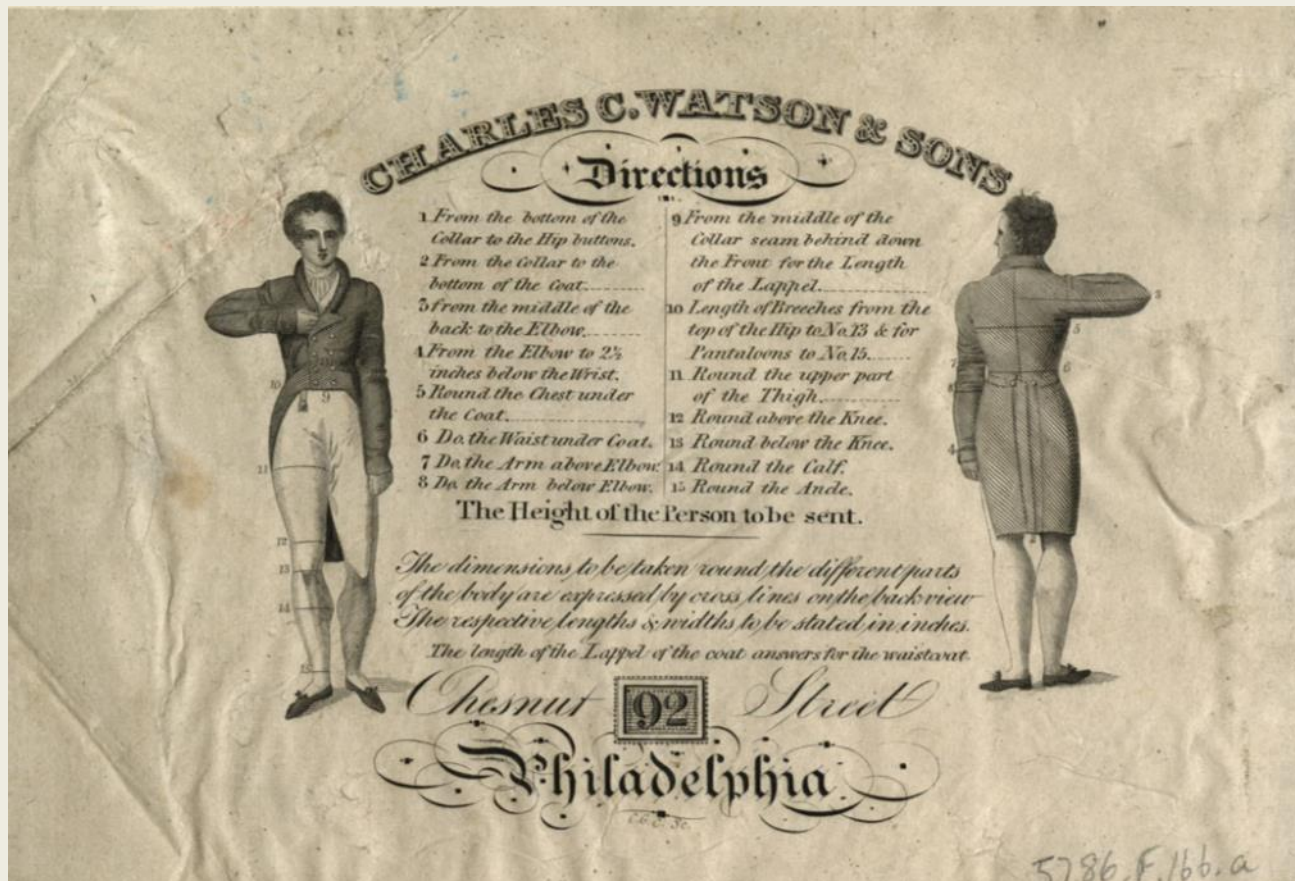 CHARLES C. WATSON & SONS
Directions
1 From the bottom of the
Collar to the Hip buttons.
2 From the Collar to the
bottom of the Coat.
3 From the middle of the
back to the Elbow.
4 From the Elbow to 2½
inches below the Wrist.
5 Round the Chest under
the Coat.
6 Do. the Waist under Coat.
7 Do. the Arm above Elbow.
8 Do. the Arm below Elbow.
9 From the middle of the
Collar seam behind down
the Front for the Length
of the Lappel.
10 Length of Breeches from the
top of the Hip to No. 13 & for
Pantaloons to No. 15.
11 Round the upper part
of the Thigh.
12 Round above the Knee.
13 Round below the Knee.
14 Round the Calf.
15 Round the Ancle.
The Height of the Person to be sent.
The dimensions to be taken round the different parts
of the body are expressed by cross lines on the back view
The respective lengths & widths to be stated in inches.
The length of the Lappel of the coat answers for the waistcoat.
Chesnut 92 Street
Philadelphia
10
9
11
12
13
14
15
3
5
7
6
8
4
2
5786.F.166.a